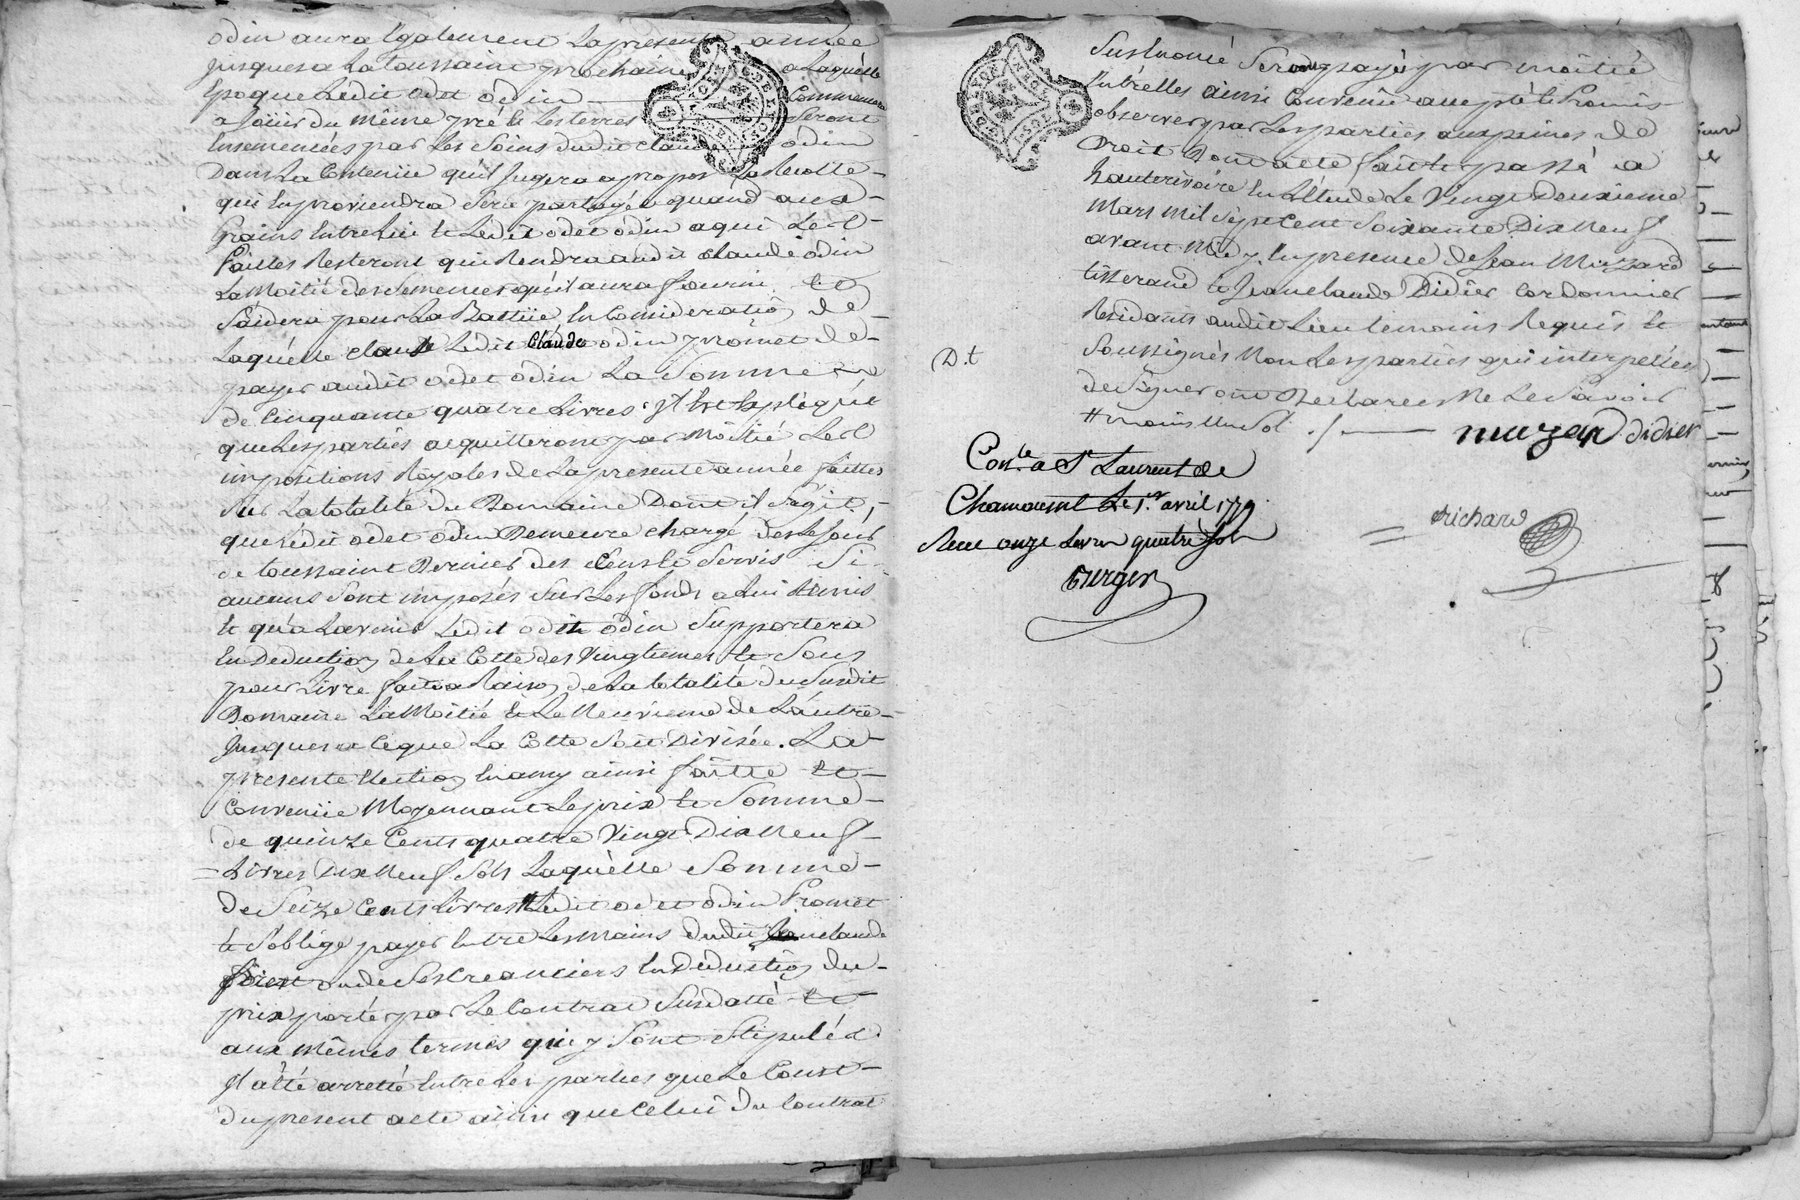 odin aura Egalement la presente année
jusques a la toussaint prochaine a laquelle
Epoque Ledit odet odin commencera
a joüir du même pré & les terres seront
Ensemencées par les soins dudit claude odin
Dans la Contenüe qu'il jugera apropos La Recolte
qui En proviendra sera partagée quand aux
Grains Entre lui & Ledit odet odin a qui Les
Pailles Resteront qui Rendra audit claude odin
La Moitié des Semences qu'il aura fourni, Et
s'aidera pour La Battüe En Consideration de
Laquelle Ledit Claude odin promet de
payer audit odet odin La Somme
de Cinquante quatre Livres. il Est Expliqué
que Les parties acquitteront par Moitié Les
impositions Royales de La presente année faittes
sur La totalité du Domaine Dont il s'agit,
que Ledit odet odin Demeure chargé des le jour
de toussaint Dernier des Cens & Servis Si
aucuns sont imposés sur Les fonds a lui Remis
& qu'a L'avenir Ledit odet odin Supportera
En Deduction de La Cotte des Vingtiemes & Sous
pour Livre faitte a Raison de La totalité du Susdit
Domaine La Moitié & Le Neuvieme de L'autre
jusques a ce que La Cotte soit Divisée. La
presente Election En amy ainsi faitte Et
Convenüe Moyennant Le prix & Somme
de quinze Cents quatre Vingt Dix Neuf
Livres Dix Neuf Sols Laquelle Somme
de Seize Cents Livres # Ledit odet odin Promet
& s'oblige payer Entre Les Mains dudit Jean claude
ou de Ses Creanciers En Deduction du
prix porté par Le Contrat Susdatté Et
aux mêmes termes qui y sont Stipulés.
Il a été arretté Entre Les parties que Le Cout
du present acte ainsi que Celui du Contrat
Susenoncé Seront payés par moitié
Entr'elles ainsi Convenu accepté & Promis
observer par Les parties aux peines de
Droit Dont acte fait & passé a
hauterivoire En L'Etude Le Vingt Deuxieme
Mars mil Sept Cent Soixante Dix Neuf
avant Midy En presence de Jean Muzard
tisserand & Jean claude Didier Cordonnier
Residants audit Lieu temoins Requis &
D.t Soussignés Non Les parties qui interpellées
de Signer ont Declarées Ne Le Savoir
# moins Un Sol ./. muzard didier
Con.lé a St Laurent de
Chamousset Le 1.er avril 1779
Recu onze Livres quatre sols
richard